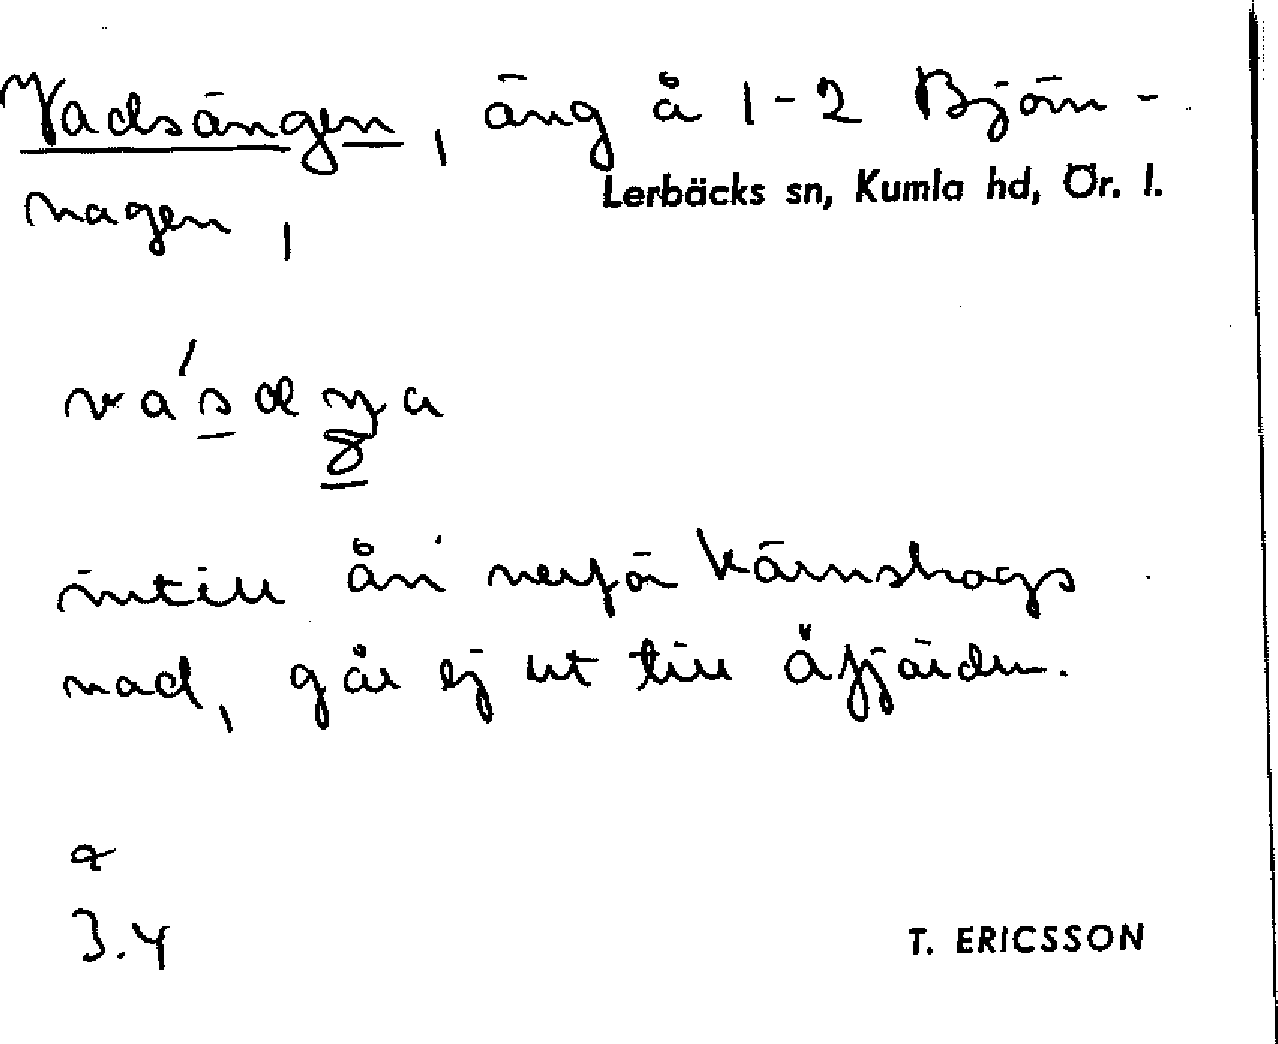 Vadsängen, äng å 1-2 Björn-
Lerbäcks sn, Kumla hd, Ör. l.
hagen,
intill ån nerför Kärnskogs
vad, går ej ut till åfjärden.
3.4
T. ERICSSON